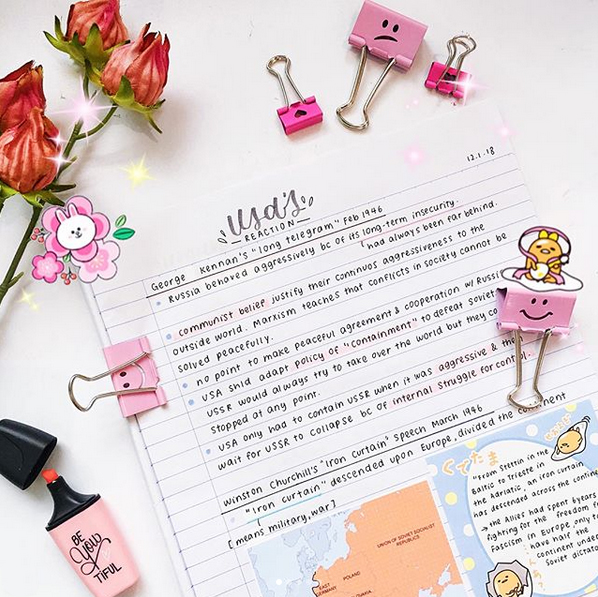 12.1.18
USA'S
REACTION
George Kennan's "long telegram" Feb 1946
Russia behaved aggressively bc of its long-term insecurity.
had always been far behind.
communist belief justify their continuos aggressiveness to the
outside world. Marxism teaches that conflicts in society cannot be
solved peacefully.
no point to make peaceful agreement & cooperation w/ Russia
USA shld adapt policy of "containment" to defeat Soviet
USSR would always try to take over the world but they co
stopped at any point.
USA only had to contain USSR when it was aggressive & the
wait for USSR to collapse bc of internal struggle for control.
Winston Churchill's "Iron curtain" Speech March 1946
"Iron curtain" descended upon Europe, divided the continent
[means military, war]
ぐでたま
"From Stettin in the
Baltic to Trieste in
the Adriatic, an iron curtain
has descended across the contin
→ the Allies had spent 6 years
fighting for the freedom f
Fascism in Europe, only t
have half the
continent unde
Soviet dictato
UNION OF SOVIET SOCIALIST
REPUBLICS
POLAND
EAST
GERMANY
BE
YOU
TIFUL